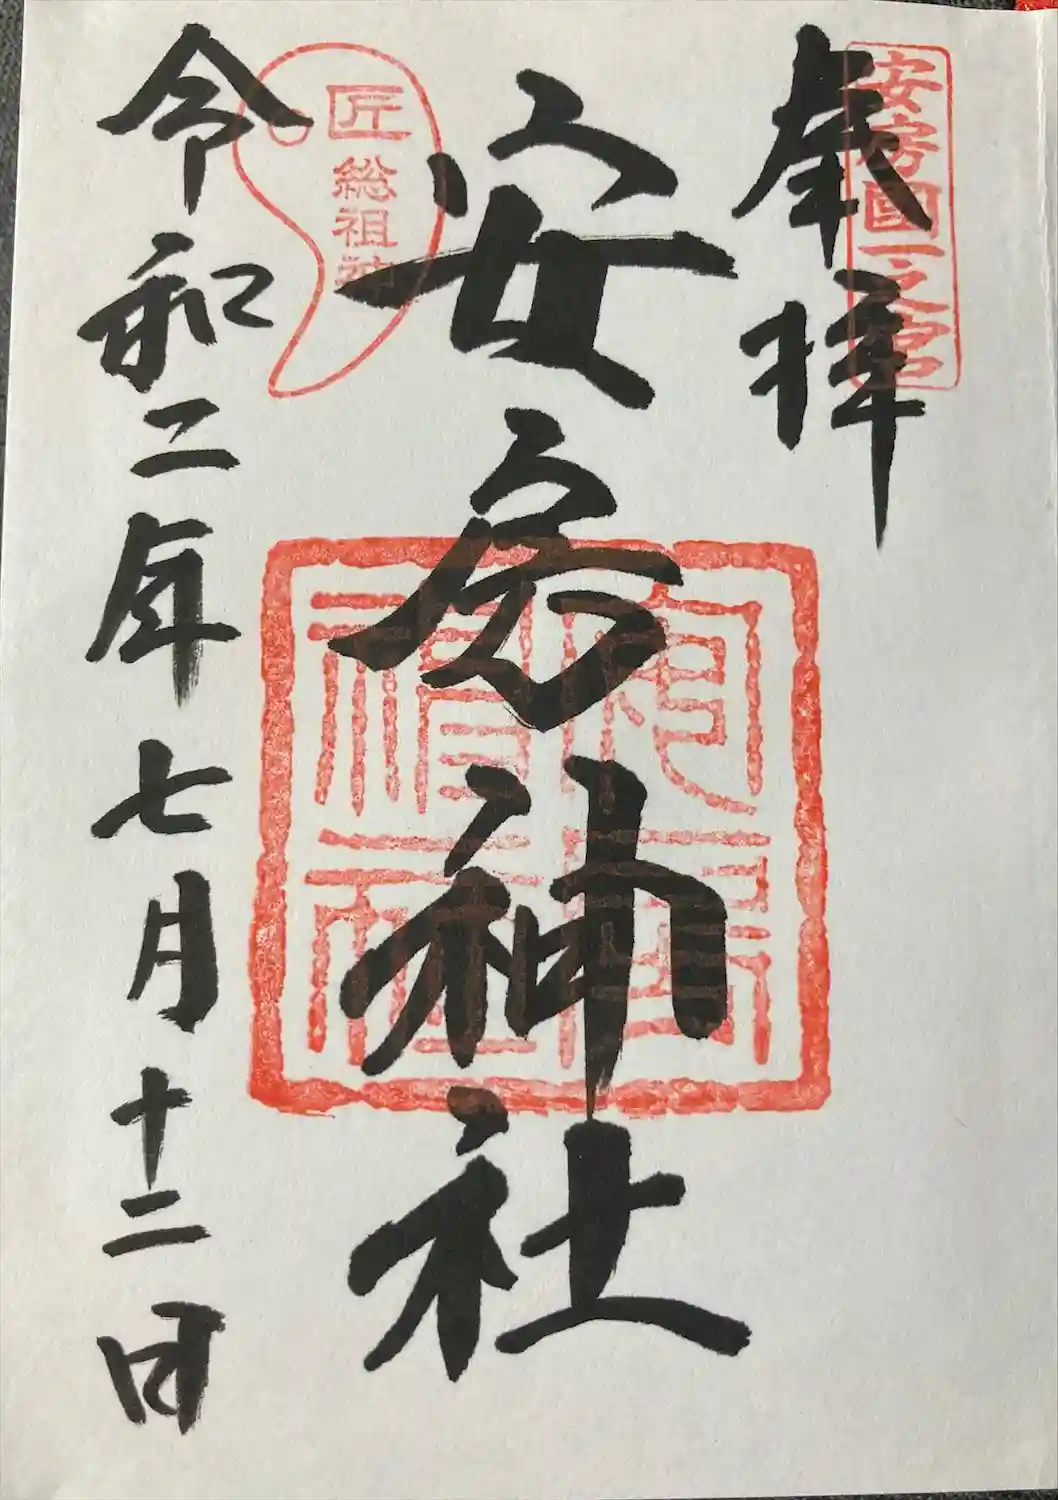 奉拝
安房國一之宮
安房神社
匠総祖神
令和二年七月十二日